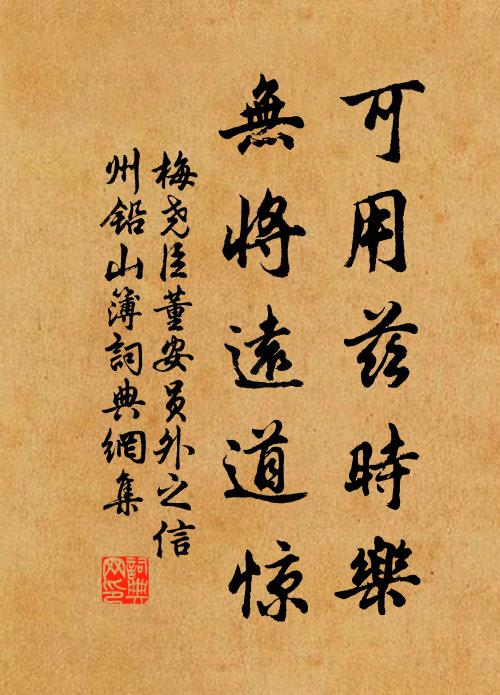 可用茲時樂
無將遠道惊
梅尧臣董安員外之信
州铅山簿詞典網集
詞典
网印